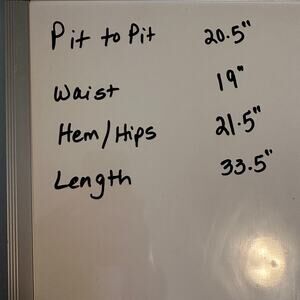 Pit to Pit 20.5"
Waist 19"
Hem/Hips 21.5"
Length 33.5"